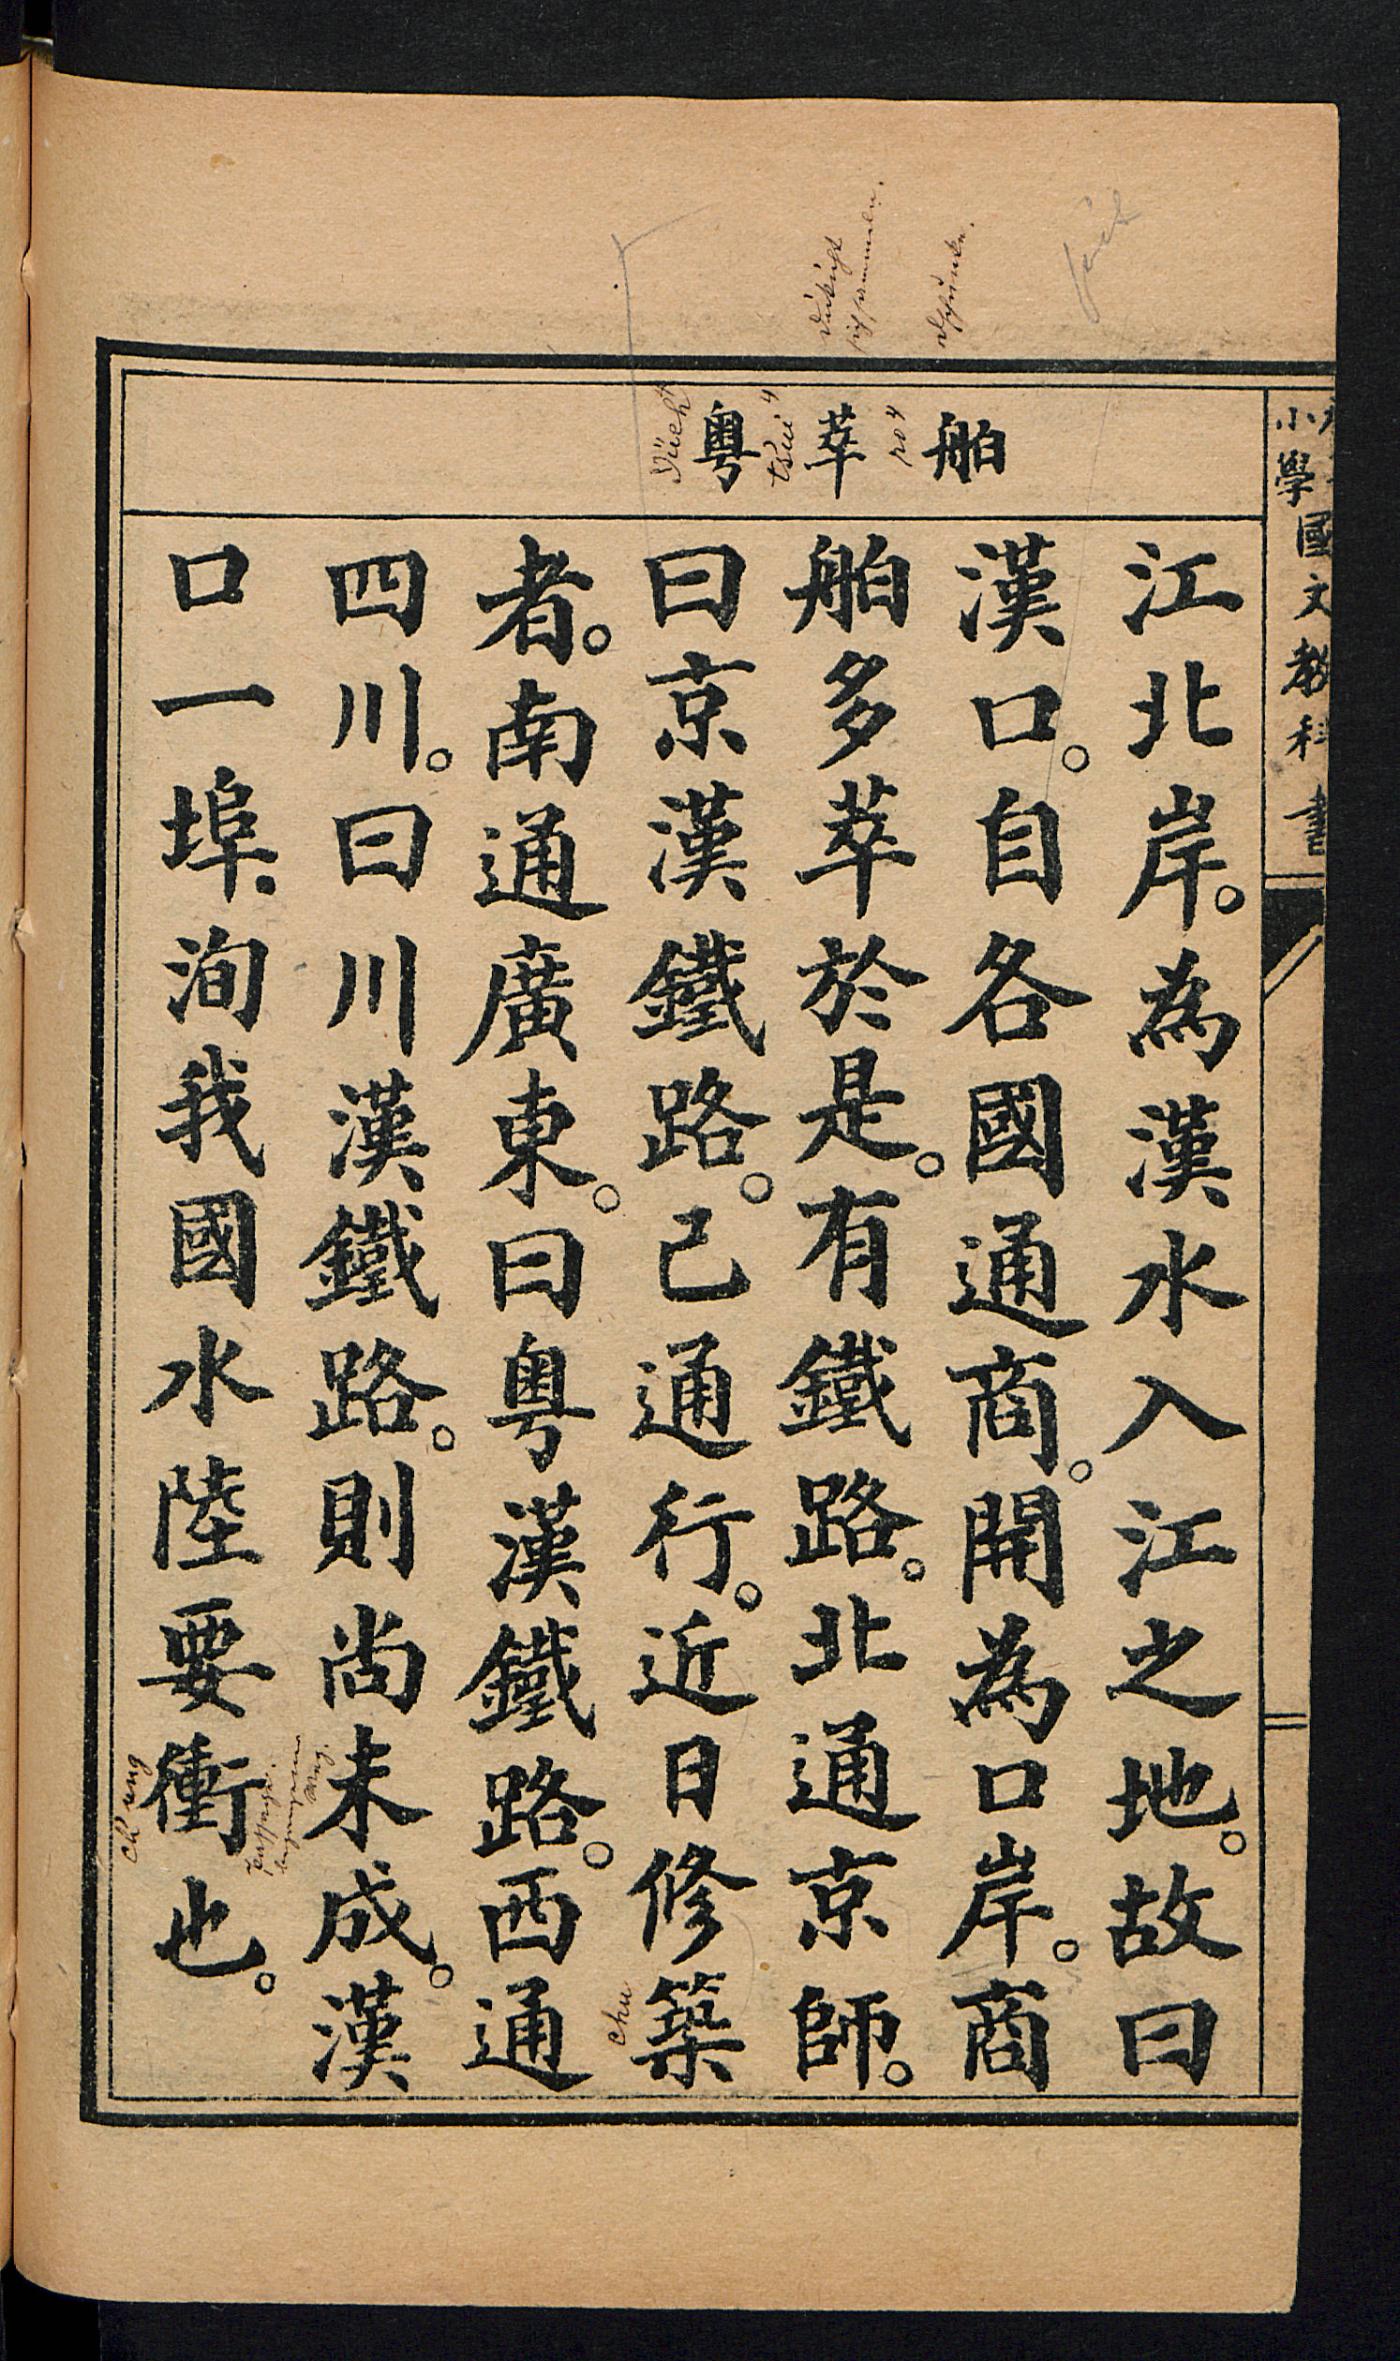 小學國文教科書
舶 萃 粤
po4
tsui4
Yüeh4
江北岸。為漢水入江之地。故曰
漢口。自各國通商。開為口岸。商
舶多萃於是。有鐵路。北通京師。
曰京漢鐵路。己通行。近日修築
chu
者。南通廣東。曰粤漢鐵路。西通
四川。曰川漢鐵路。則尚未成。漢
口一埠。洵我國水陸要衝也。
ch'ung